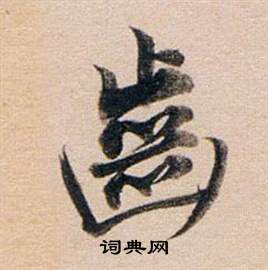 齒
词典网